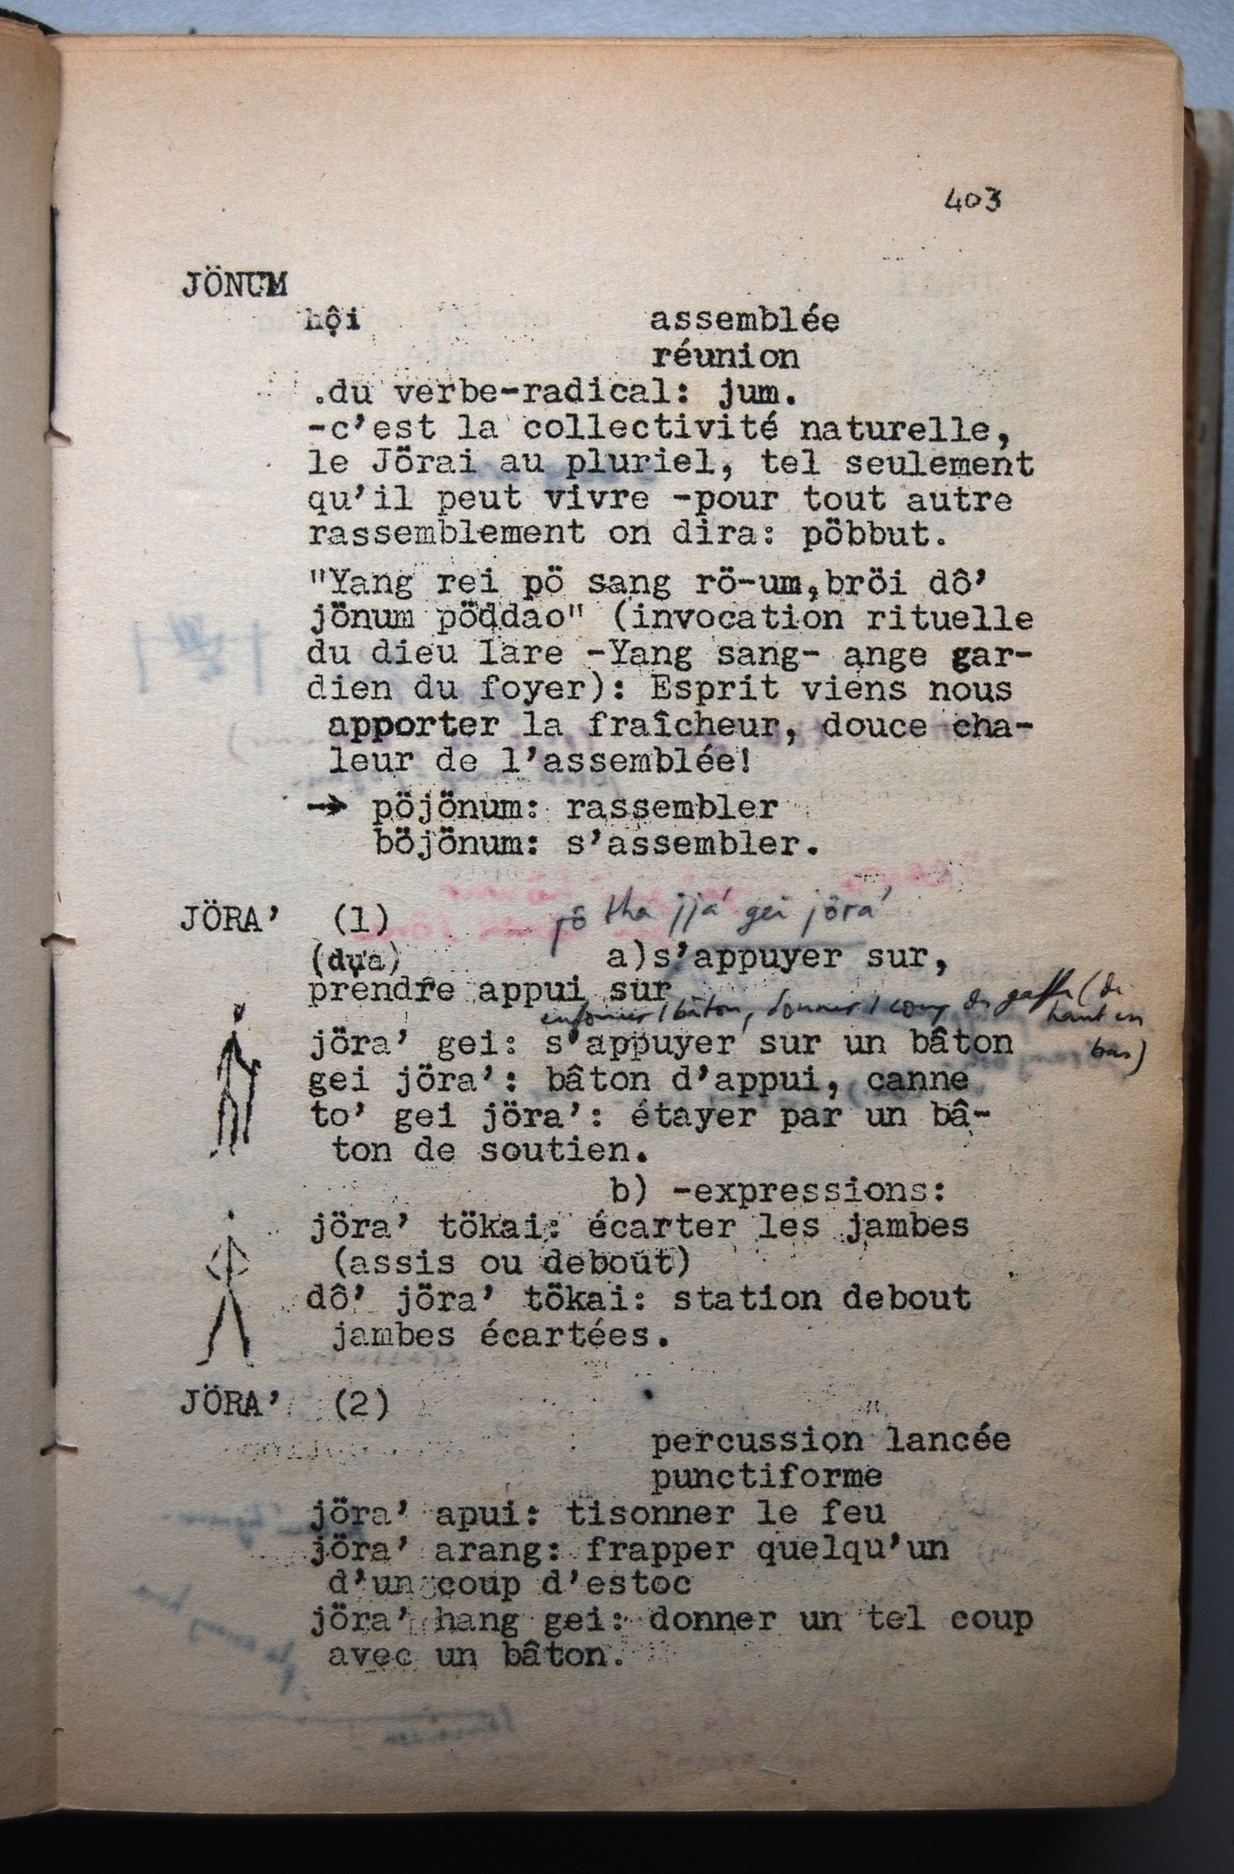 403
JÖNUM
hội assemblée
réunion
.du verbe-radical: jum.
-c'est la collectivité naturelle,
le Jörai au pluriel, tel seulement
qu'il peut vivre -pour tout autre
rassemblement on dira: pöbbut.
"Yang rei pö sang rö-um,bröi dô'
jönum pöddao" (invocation rituelle
du dieu lare -Yang sang- ange gar-
dien du foyer): Esprit viens nous
apporter la fraîcheur, douce cha-
leur de l'assemblée!
→ pöjönum: rassembler
böjönum: s'assembler.
JÖRA' (1) pô tha jja' gei jöra'
(dựa) a)s'appuyer sur,
prendre appui sur
enfoncer 1 bâton, donner 1 coup de gaffe (de
haut en
bas)
jöra' gei: s'appuyer sur un bâton
gei jöra': bâton d'appui, canne
to' gei jöra': étayer par un bâ-
ton de soutien.
b) -expressions:
jöra' tökai: écarter les jambes
(assis ou debout)
dô' jöra' tökai: station debout
jambes écartées.
JÖRA' (2)
percussion lancée
punctiforme
jöra' apui: tisonner le feu
jöra' arang: frapper quelqu'un
d'un coup d'estoc
jöra' hang gei: donner un tel coup
avec un bâton.